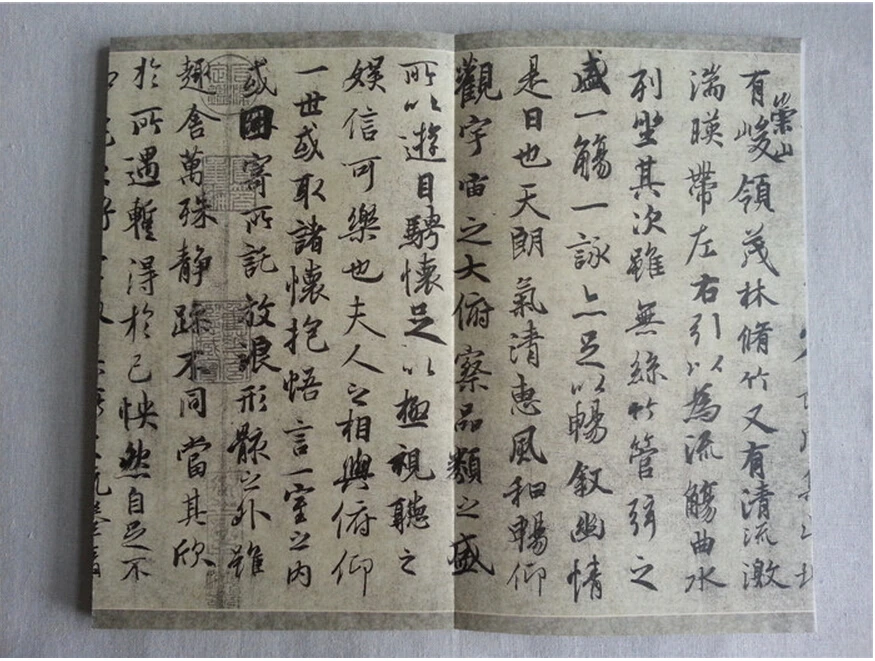 有崇山峻領茂林脩竹又有清流激
湍暎帶左右引以為流觴曲水
列坐其次雖無絲竹管弦之
盛一觴一詠亦足以暢敘幽情
是日也天朗氣清惠風和暢仰
觀宇宙之大俯察品類之盛
所以遊目騁懷足以極視聽之
娛信可樂也夫人之相與俯仰
一世或取諸懷抱悟言一室之內
或因寄所託放浪形骸之外雖
趣舍萬殊靜躁不同當其欣
於所遇暫得於己怏然自足不